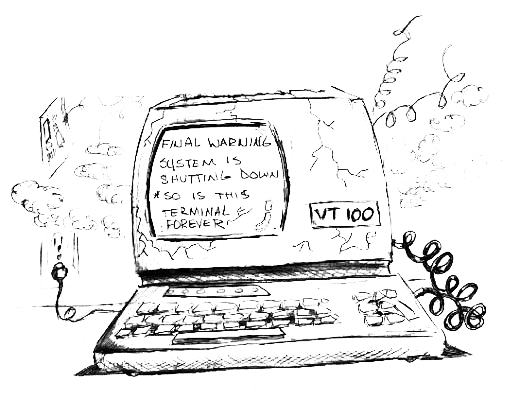 FINAL WARNING
SYSTEM IS
SHUTTING DOWN
*SO IS THIS
TERMINAL
FOREVER!
VT 100